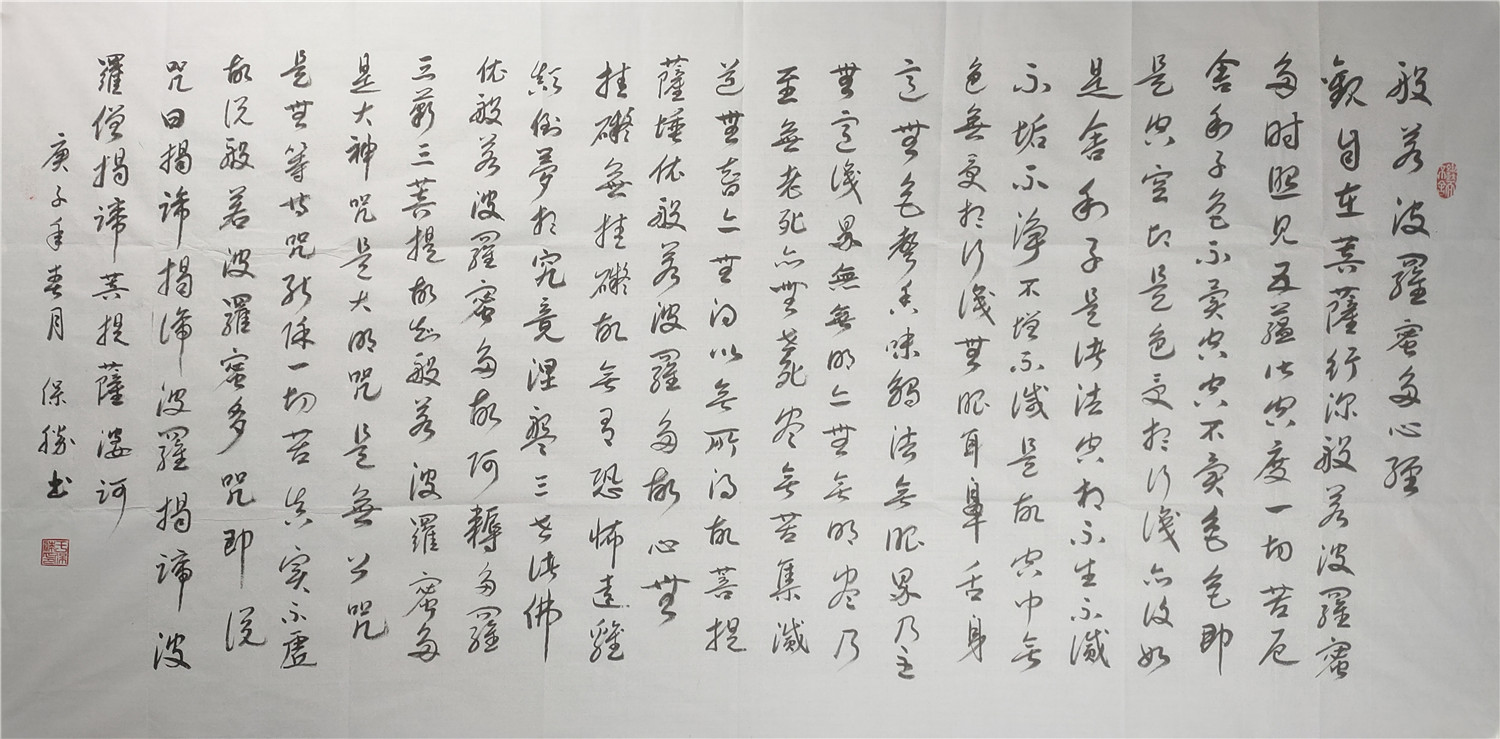 般若波羅蜜多心經
觀自在菩薩行深般若波羅蜜
多时照見五蘊皆空度一切苦厄
舍利子色不異空空不異色色即
是空空即是色受想行識亦復如
是舍利子是诸法空相不生不滅
不垢不淨不增不減是故空中無
色無受想行識無眼耳鼻舌身
意無色聲香味觸法無眼界乃至
無意識界無無明亦無無明盡乃
至無老死亦無老死盡無苦集滅
道無智亦無得以無所得故菩提
薩埵依般若波羅蜜多故心無
挂礙無挂礙故無有恐怖遠離
顛倒夢想究竟涅槃三世诸佛
依般若波羅蜜多故阿耨多羅
三藐三菩提故知般若波羅蜜多
是大神咒是大明咒是無上咒
是無等等咒能除一切苦真實不虛
故说般若波羅蜜多咒即说
咒曰揭諦揭諦波羅揭諦波
羅僧揭諦菩提薩婆訶
庚子年春月 保勝书